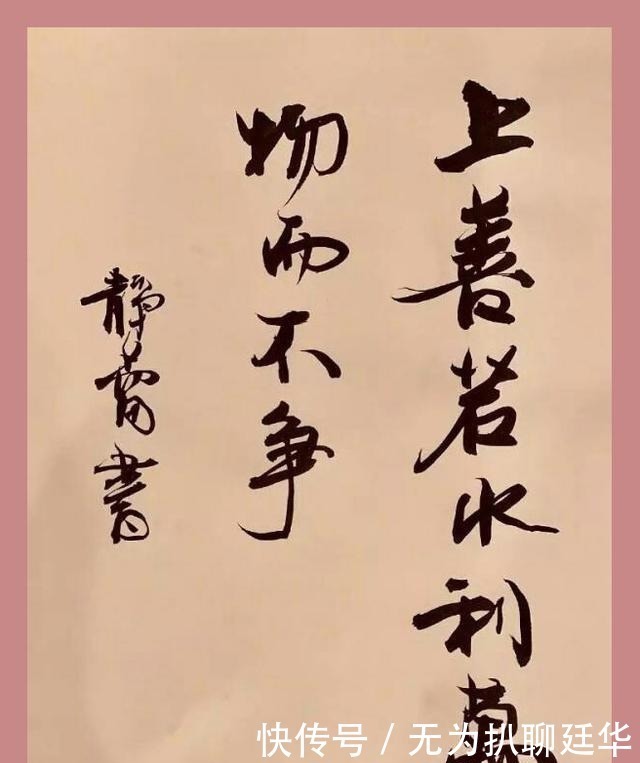 上善若水利萬
物而不争
静蕾書
快传号 / 无为扒聊廷华